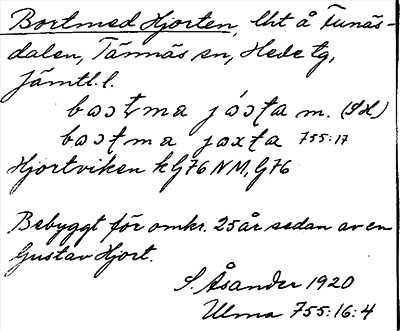 Bortmed Hjorten, lht å Funäs-
dalen, Tännäs sn, Hede tg,
Jämtl. l.
m. (SH)
755:17
Hjortviken k G76 NM, G76
Bebyggt för omkr. 25 år sedan av en
Gustav Hjort.
S. Åsander 1920
Ulma 755:16:4